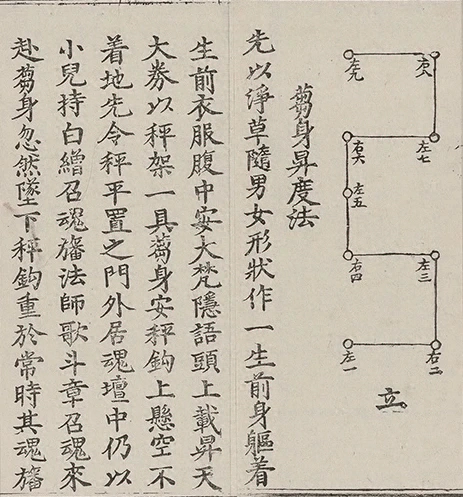 右八
左九
左七
右六
左五
左三
右四
右二
左一
立
蒭身昇度法
先以淨草隨男女形狀作一生前身軀着
生前衣服腹中安大梵隱語頭上載昇天
大券以秤架一具蒭身安秤鈎上懸空不
着地先令秤平置之門外居魂壇中仍以
小兒持白繒召魂旛法師歌斗章召魂來
赴蒭身忽然墜下秤鈎重於常時其魂旛